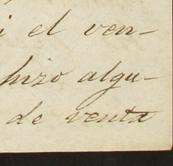 i el ven-
hizo algu-
de venta